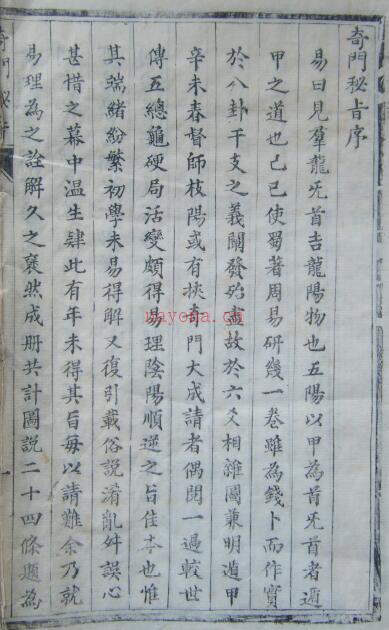 奇門秘旨序
易曰見羣龍旡首吉龍陽物也五陽以甲為首旡首者遁
甲之道也己巳使蜀著周易研幾一卷雖為錢卜而作實
於八卦干支之義闡發殆盡故於六爻相雜圖兼明遁甲
辛未春督師枝陽或有挾奇門大成請者偶閱一過較世
傳五總龜硬局活變頗得易理陰陽順逆之旨佳本也惟
其端緒紛繁初學未易得解又復引載俗說淆亂舛誤心
甚惜之幕中温生肄此有年未得其旨每以請難余乃就
易理為之詮解久之裒然成册共計圖說二十四條題為
奇門秘旨
nayona.cn